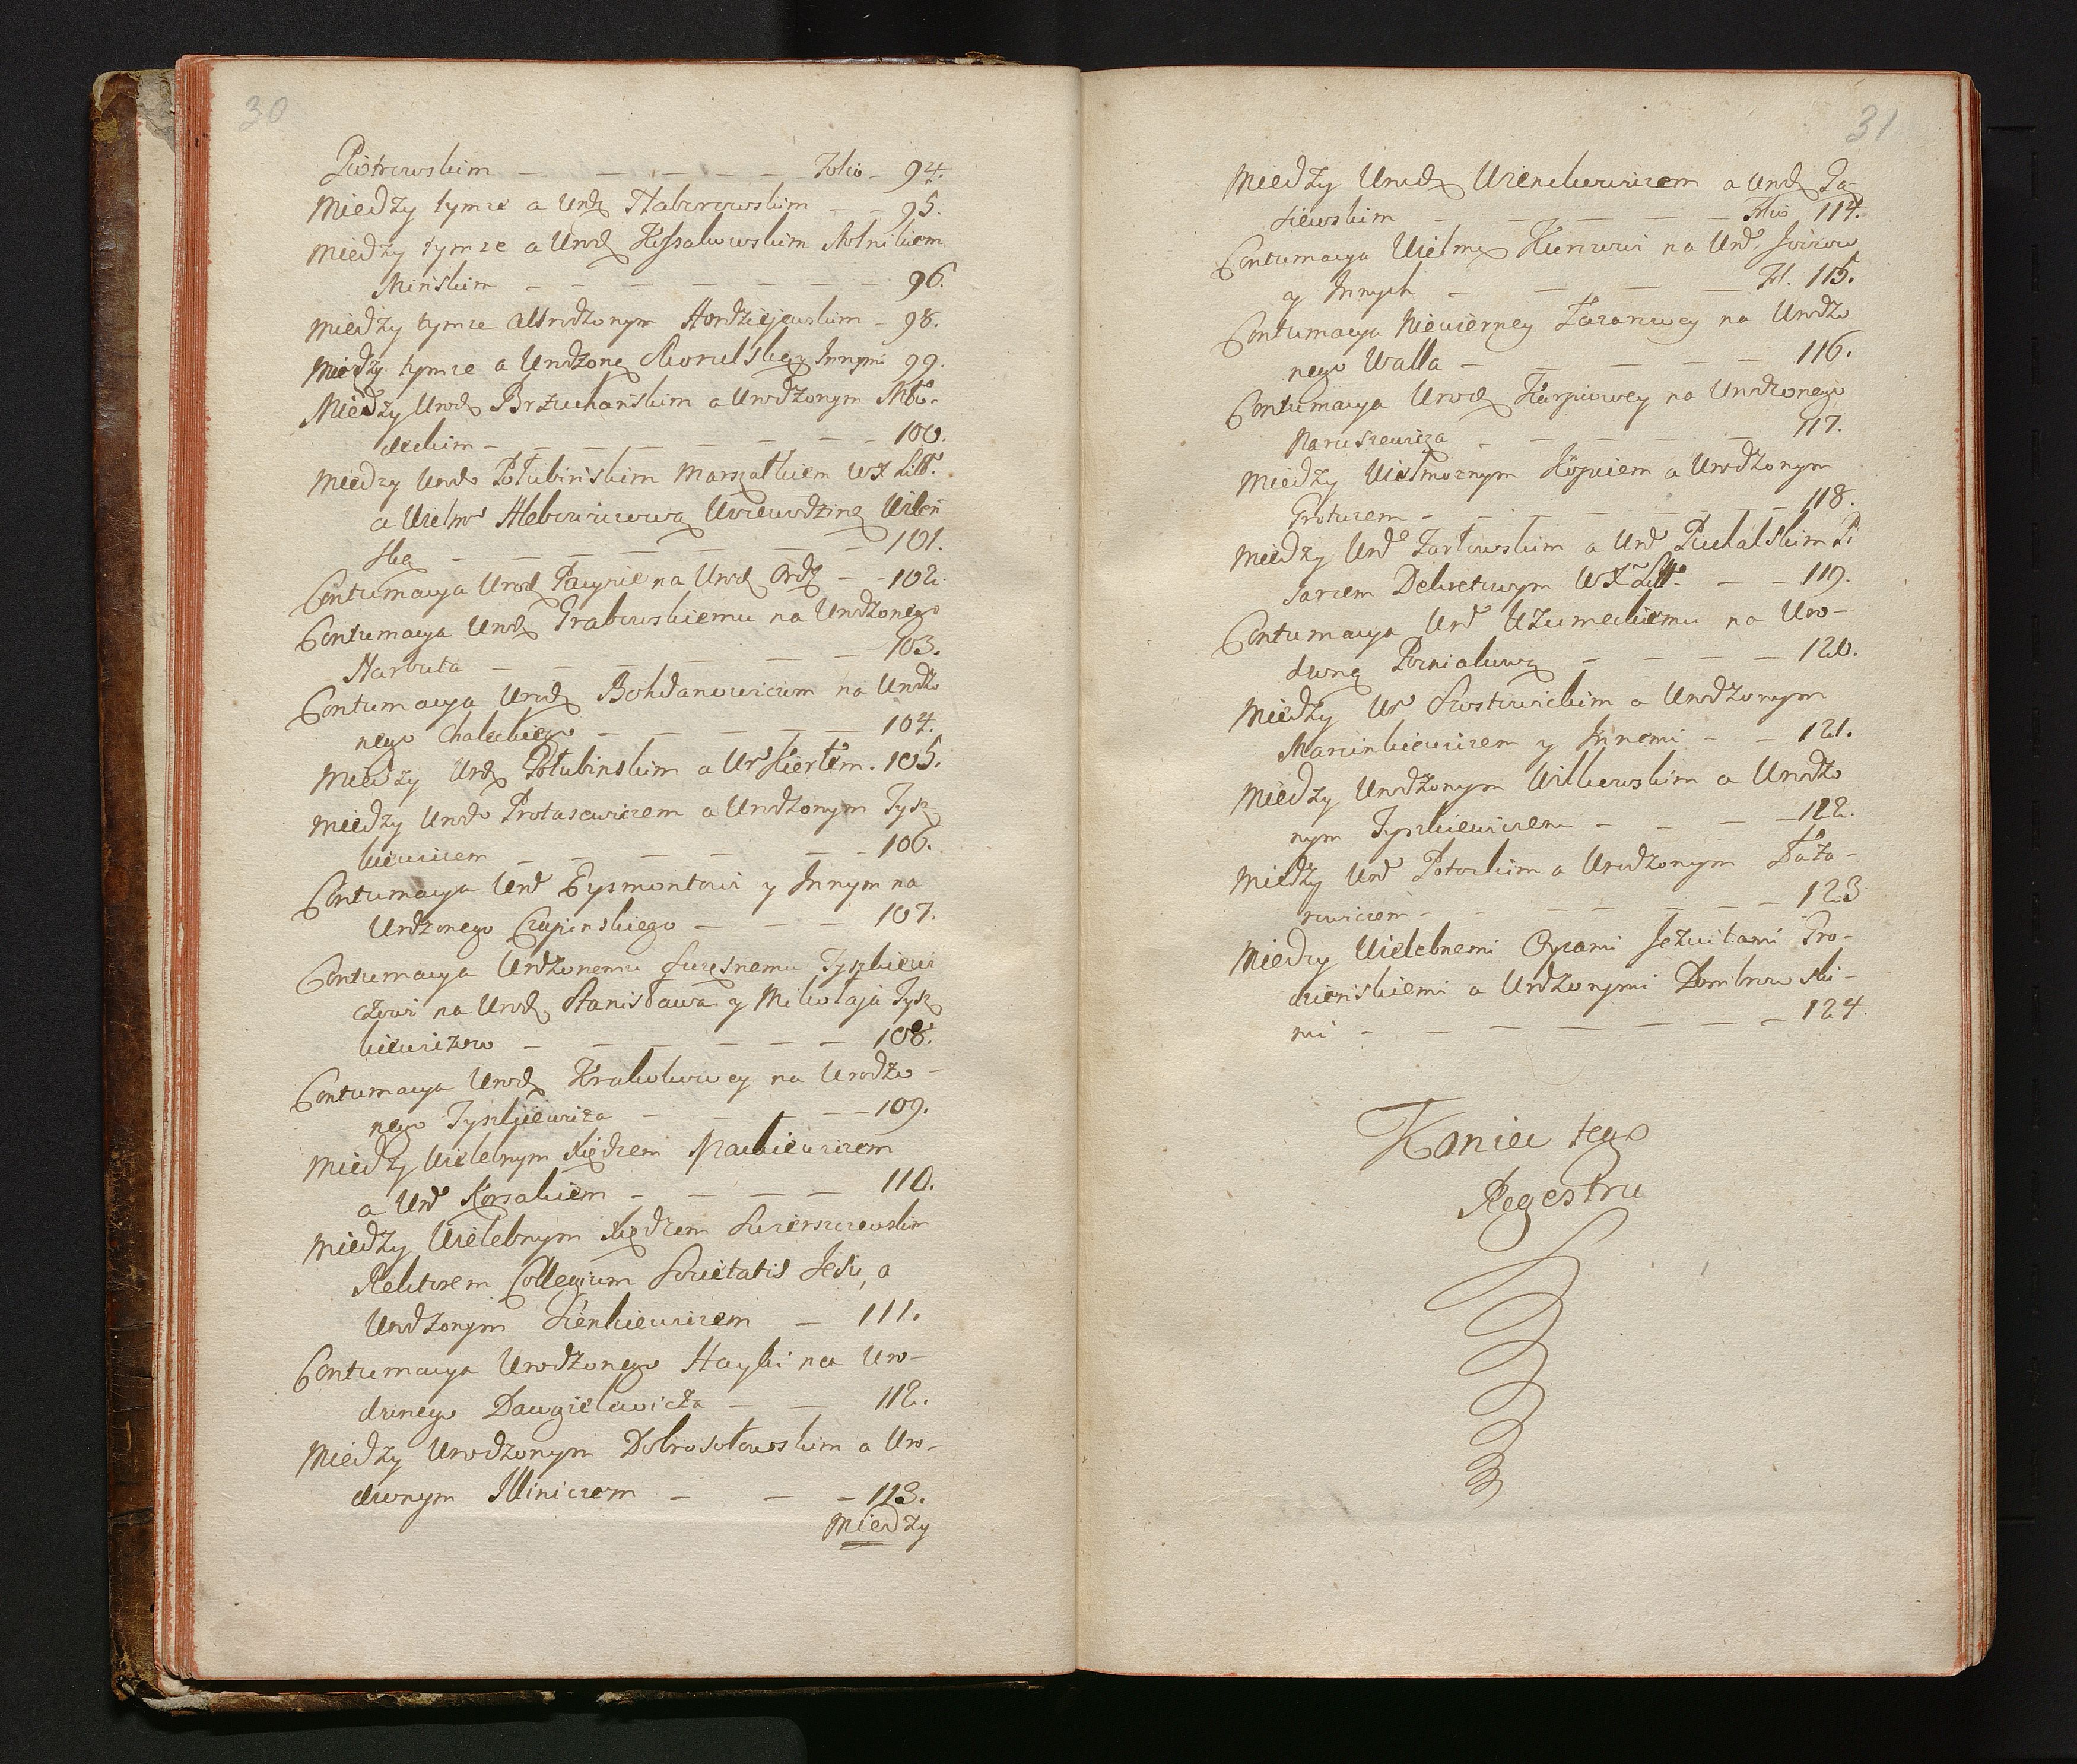 30
Piotrowskim — — — — — — Folio — 94.
Miedzy tymze a Urdz Haborowskim — — 95.
Miedzy tymze a Urod Kossakowskim Stolnikiem
Minskim — — — — — — — 96.
Miedzy tymze a Urodzonym Hordziejewskim — 98.
Miedzy tymze a Urodzoną y Innymi 99.
Miedzy Urod Brzuchanskim a Urodzonym Mło-
deckim — — — — — — — 100.
Miedzy Urodo Połubinskim Marszałkiem WX Litt
a Wielmo Hlebowiczową Woiewodziną Wilen
ską — — — — — — — 101.
Contumacya Urod Pacynie na Urod Ordz — — 102.
Contumacya Urod Grabowskiemu na Urodzonego
Narbuta — — — — — — 103.
Contumacya Urod Bohdanowiczom na Urodzo
nego Chaleckiego — — — — — 104.
Miedzy Urdz Połubinskim a Ur Kierłem. 105.
Miedzy Urodo Protasewiczem a Urodzonym Tysz
kiewiczem — — — — — — 106.
Contumacya Urd Eysmontowi y Innym na
Urdzonego Czapinskiego — — — 107.
Contumacya Urdzonemu Tyszkiewi
czowi na Urod Stanisława y Mikołaja Tysz
kiewiczow — — — — — — 108.
Contumacya Urod Krakokowey na Urodzo-
nego Tyszkiewicza — — — — 109.
Miedzy Wielebnym Xiędzem Mackiewiczem
a Urd Korsakiem — — — — 110.
Miedzy Wielebnym Xiędzem
Rektorem Collegium Societatis Jesu, a
Urodzonym Sienkiewiczem — 111.
Contumacya Urodzonego Hayki na Uro-
dzonego Dawgielewicza — — 112.
Miedzy Urodzonym Dobrosołowskim a Uro-
dzonym Illiniczem — — — 113.
Miedzy
31
Miedzy Urodz Wienckowiczem a Urod Ga-
siewskim — — — — — Folio 114.
Contumacya Wielm na Urd
y Innych — — — — Fol. 115.
Contumacya Niewierney Łazarowey na Urodzo
nego Walla — — — — — 116.
Contumacya Urod Karpiowey na Urodzonego
Naruszewicza — — — — — 117.
Miedzy Wielmoznym Kopciem a Urodzonym
Grotuzem — — — — — — 118.
Miedzy Urd Zarłowskim a Urd Puchalskim Pi
sarzem Dekretowym WX Litt — — — 119.
Contumacya Urd Uzumeckiemu na Uro-
dzoną Pozniakową — — — — 120.
Miedzy Ur Szostowickim a Urodzonym
Marcinkiewiczem y Innemi — — 121.
Miedzy Urodzonym Wilkowskim a Urodzo
nym Tyszkiewiczem — — — — 122.
Miedzy Urd Potockim a Urodzonym Łaza-
rowiczem — — — — — — — 123
Miedzy Wielebnemi Oycami Jezuitami Gro-
dzienskiemi a Urdzonymi Dombrowski-
mi — — — — — — — 124.
Koniec tego
Regestru